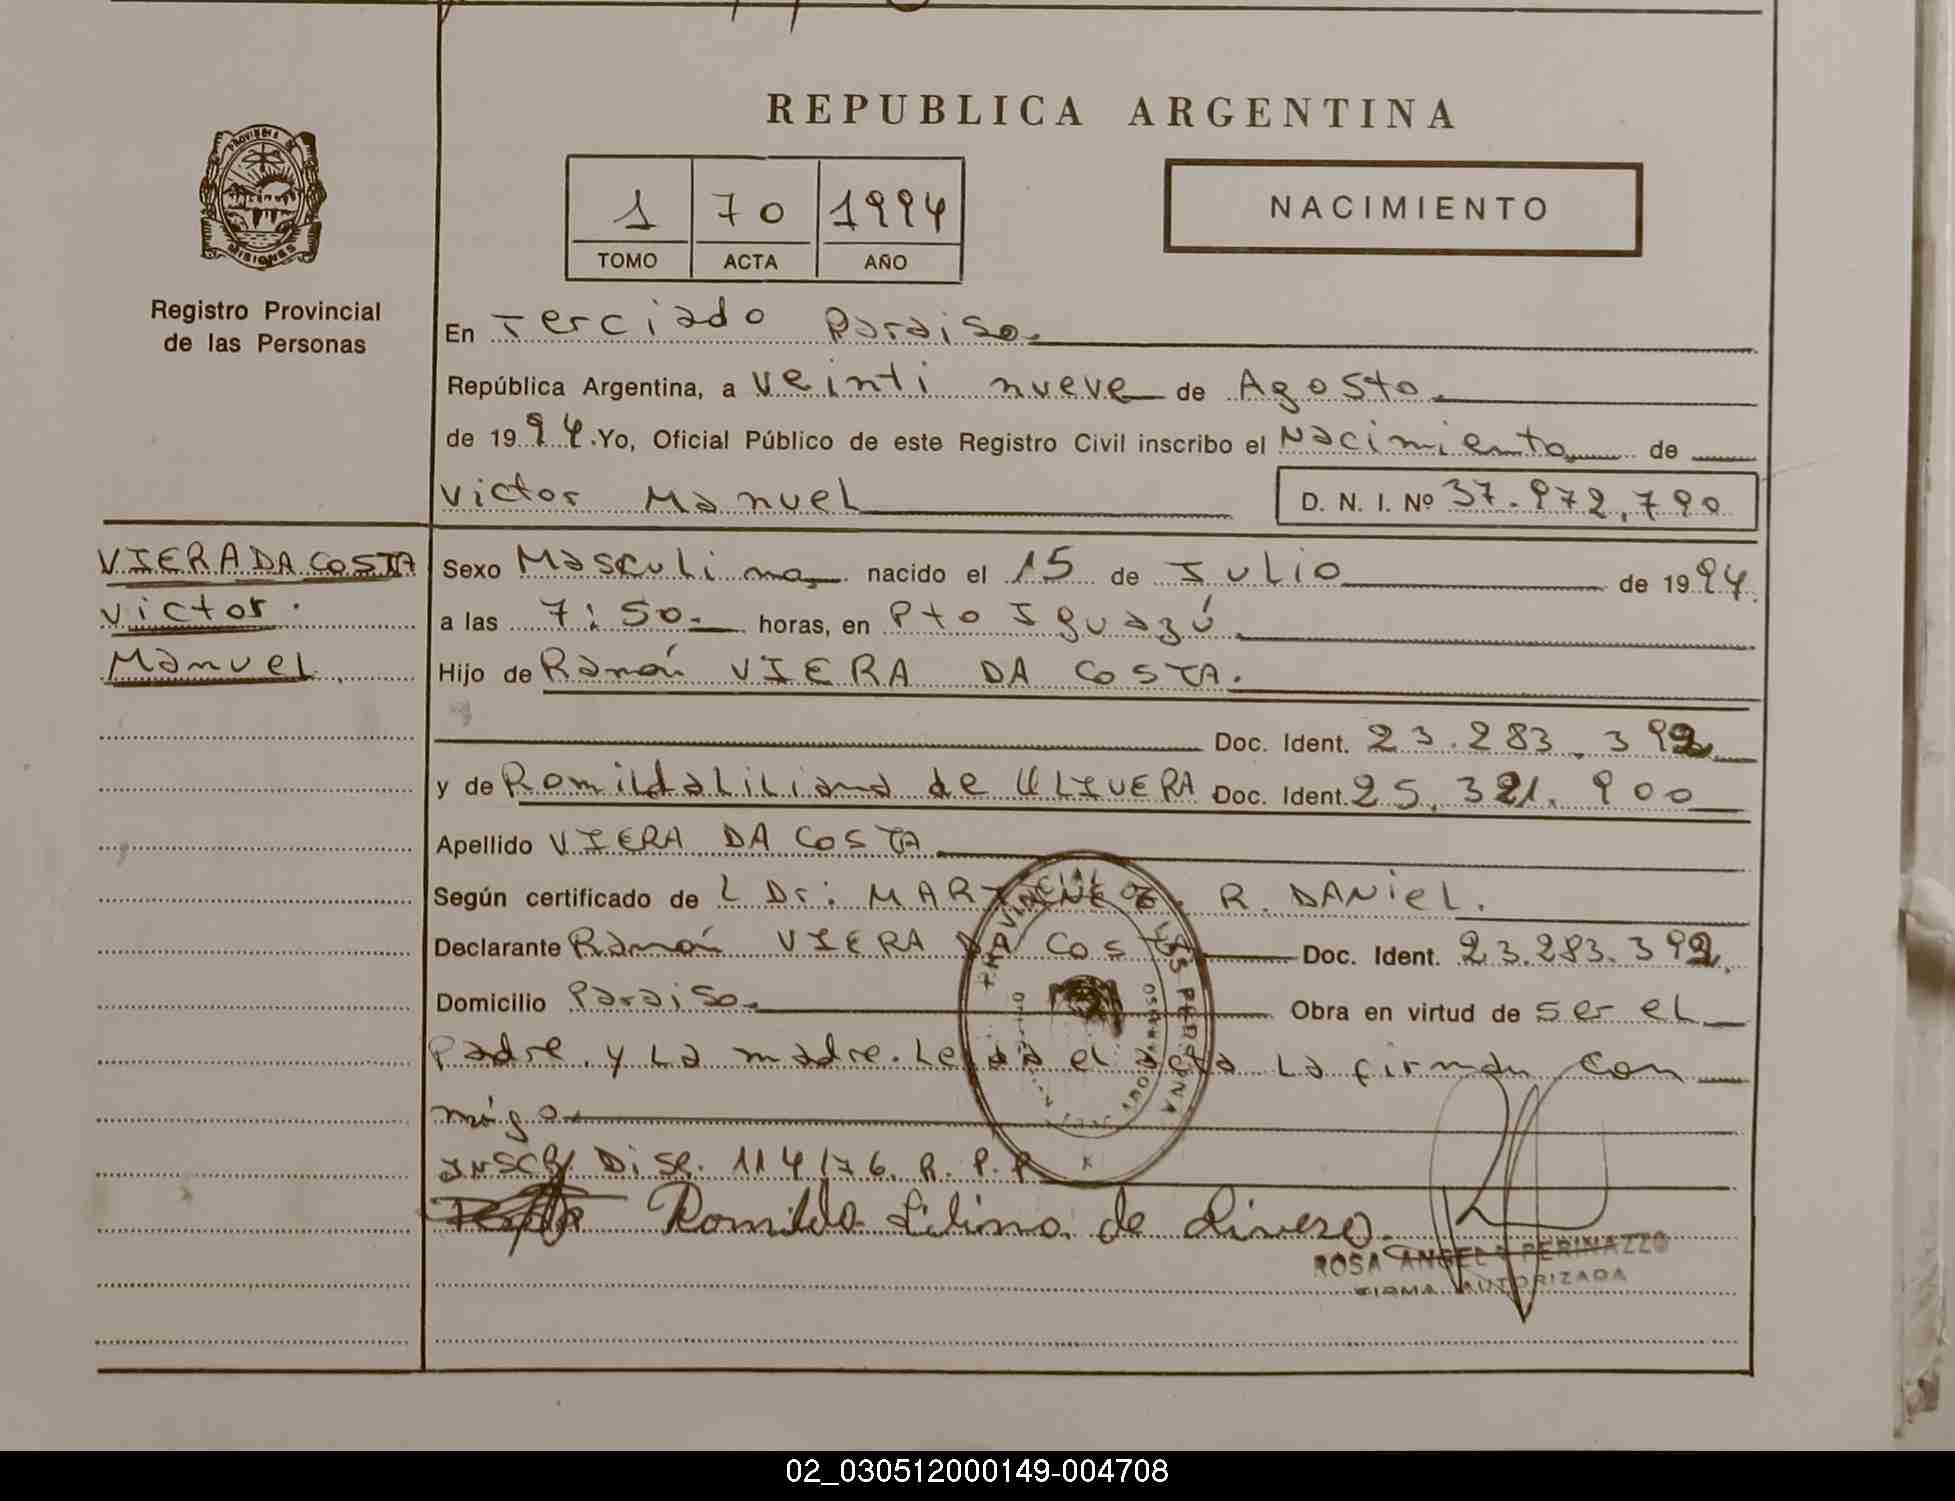 REPUBLICA ARGENTINA
PROVINCIA DE
MISIONES
Registro Provincial
de las Personas
1 70 1994
TOMO ACTA AÑO
NACIMIENTO
En Terciado Paraiso.
República Argentina, a veinti nueve de Agosto
de 1994. Yo, Oficial Público de este Registro Civil inscribo el Nacimiento de
Victor Manuel D. N. I. Nº 37.972.790
VIERA DA COSTA
Victor.
Manuel
Sexo Masculino nacido el 15 de Julio de 1994.
a las 7:50. horas, en Pto Iguazú
Hijo de Ramón VIERA DA COSTA.
Doc. Ident. 23.283.392
y de Romilda Liliana de OLIVERA Doc. Ident. 25.321.900
Apellido VIERA DA COSTA
Según certificado de L Dr: MARTINEZ. R. DANIEL.
Declarante Ramón VIERA DA COSTA Doc. Ident. 23.283.392.
Domicilio Paraiso. Obra en virtud de ser el
Padre y La madre. Leida el Acta La firman con
migo
INSCR/ Disp. 114/76. R. P. P
Romilda Liliana de Livera
ROSA ANGELA PERINAZZO
FIRMA AUTORIZADA
02_030512000149-004708